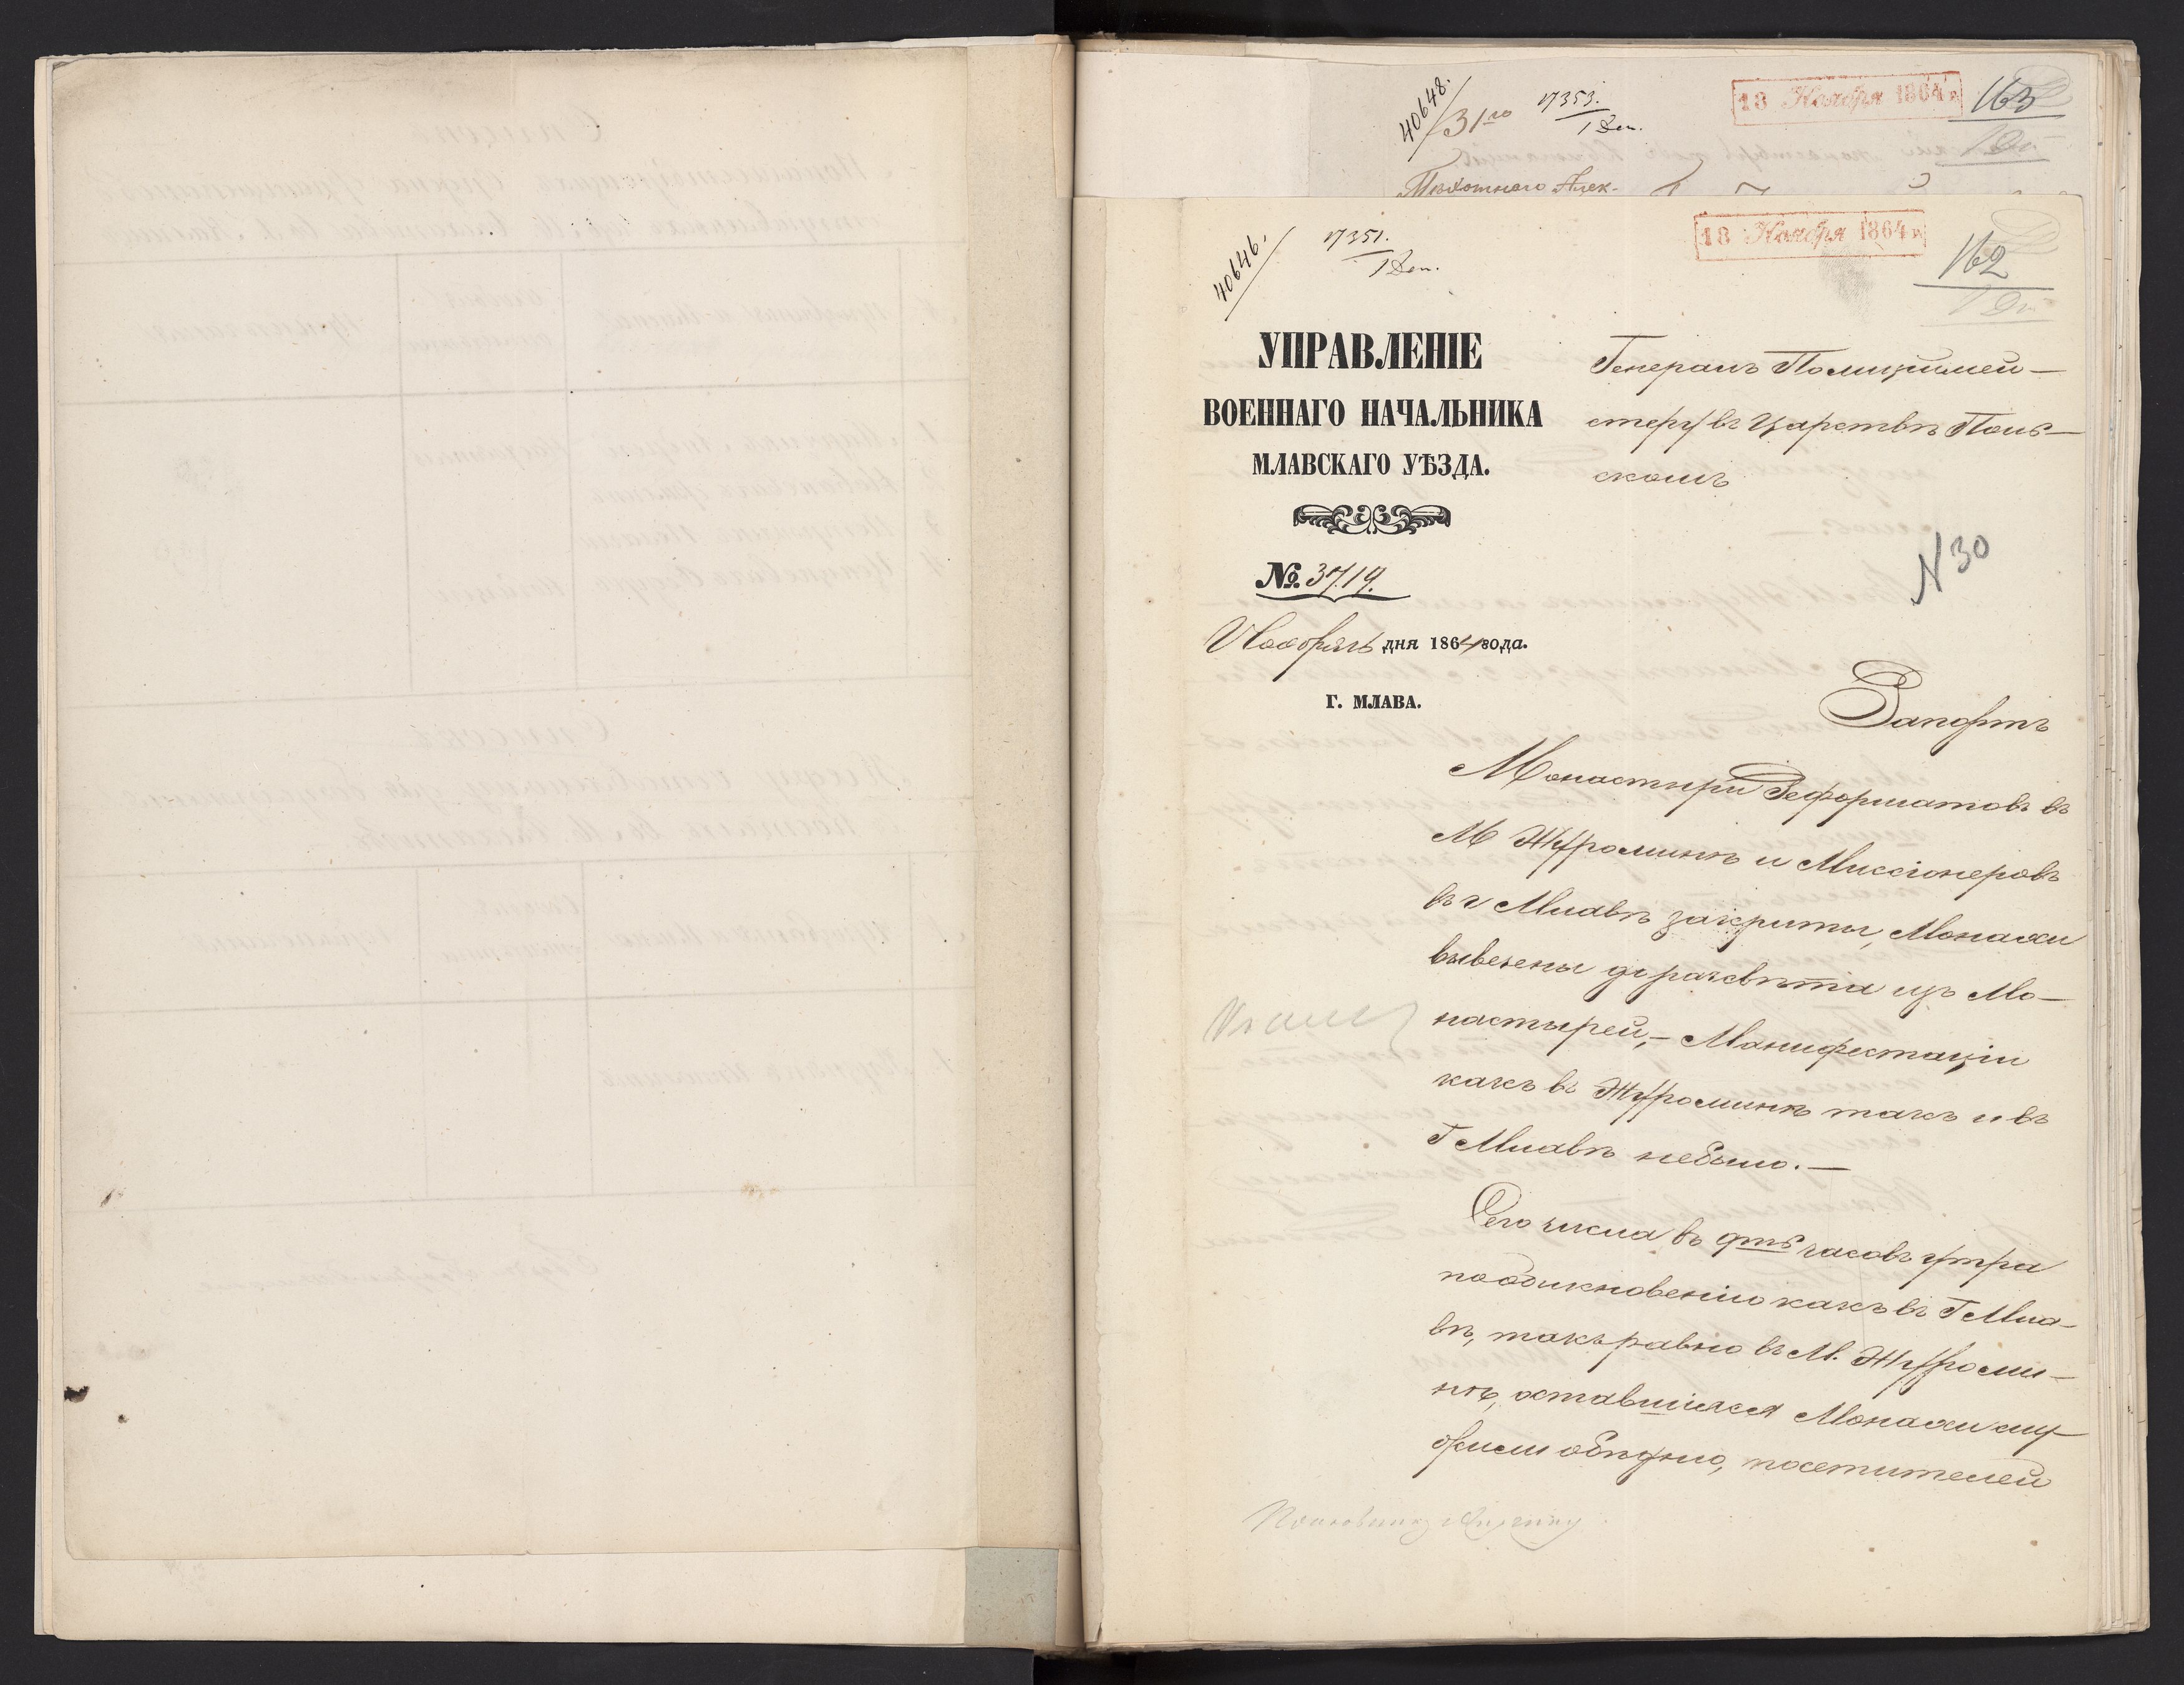 40648.
31го
17353.
1 Деп.
18 Ноября 1864 г.
163
Пѣхотнаго Алек-
40646.
17351.
1 Деп.
18 Ноября 1864 г.
162
УПРАВЛЕНІЕ
ВОЕННАГО НАЧАЛЬНИКА
МЛАВСКАГО УѢЗДА.
№ 3719.
Ноября 16 дня 1864 года.
Г. МЛАВА.
Генералъ Полицiймей-
стеру въ Царствѣ Поль-
скомъ
N 30
Рапортъ
Монастыри Реформатовъ въ
М Журоминѣ и Миссіонеровъ
въ г Млавѣ закрыты, Монахи
вывезены до разсвѣта изъ Мо-
настырей,- Манифестаціи
какъ въ Журоминѣ такъ и въ
Г Млавѣ небыло.-
Сего числа въ 9ть часовъ утра
пообыкновенію какъ въ Г Мла-
вѣ, такъ равно въ М. Журоми-
нѣ, оставшіеся Монахи слу-
жили обѣдню, посетителей